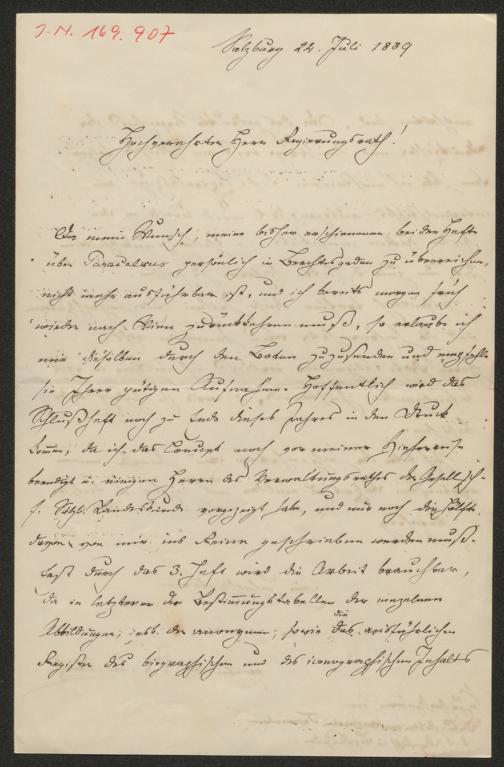 I.N. 169.907
Salzburg 22. Juli 1889
Hochverehrter Herr Regierungsrath!
Da mein Wunsch, meine bisher erschienenen beiden Hefte
über Paracelsus persönlich in Berchtesgaden zu überreichen,
nicht mehr ausführbar ist, und ich bereits morgen früh
wieder nach Wien zurückkehren muß, so erlaube ich
mir dieselben durch den Boten zuzusenden und empfehle
sie Ihrer gütigen Aufnahme. Hoffentlich wird das
Schlußheft noch zu Ende dieses Jahres in den Druck
kommen, da ich das Concept noch vor meiner Hieherreise
beendigt u. einigen Herren des Verwaltungsrathes der Gesellsch.
f. Salzb. Landeskunde vorgezeigt habe, und nur noch die Hälfte
davon von mir ins Reine geschrieben werden muß.
Erst durch das 3. Heft wird die Arbeit brauchbar,
da in letzterer die Bestimmungstabellen der einzelnen
Abbildungen, insb. der anonymen, sowie die ausführlichen
Register des biographischen und des iconographischen Inhalts